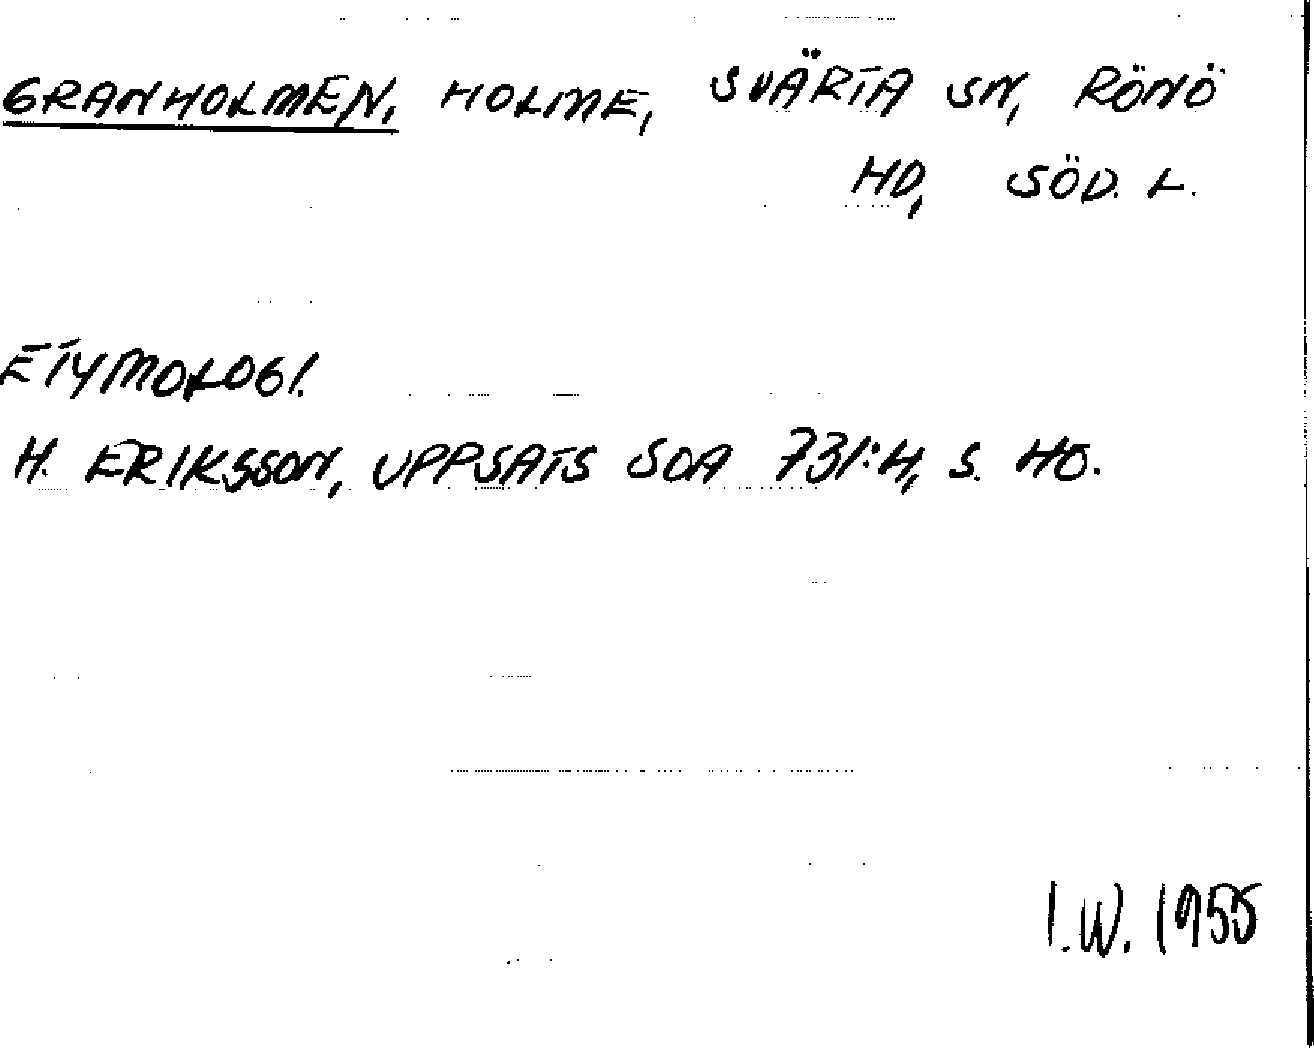 GRANHOLMEN, HOLME, SVÄRTA SN, RÖNÖ
HD, SÖD. L.
ETYMOLOGI.
H. ERIKSSON, UPPSATS SOA 731:4, S. 40.
I.W. 1955